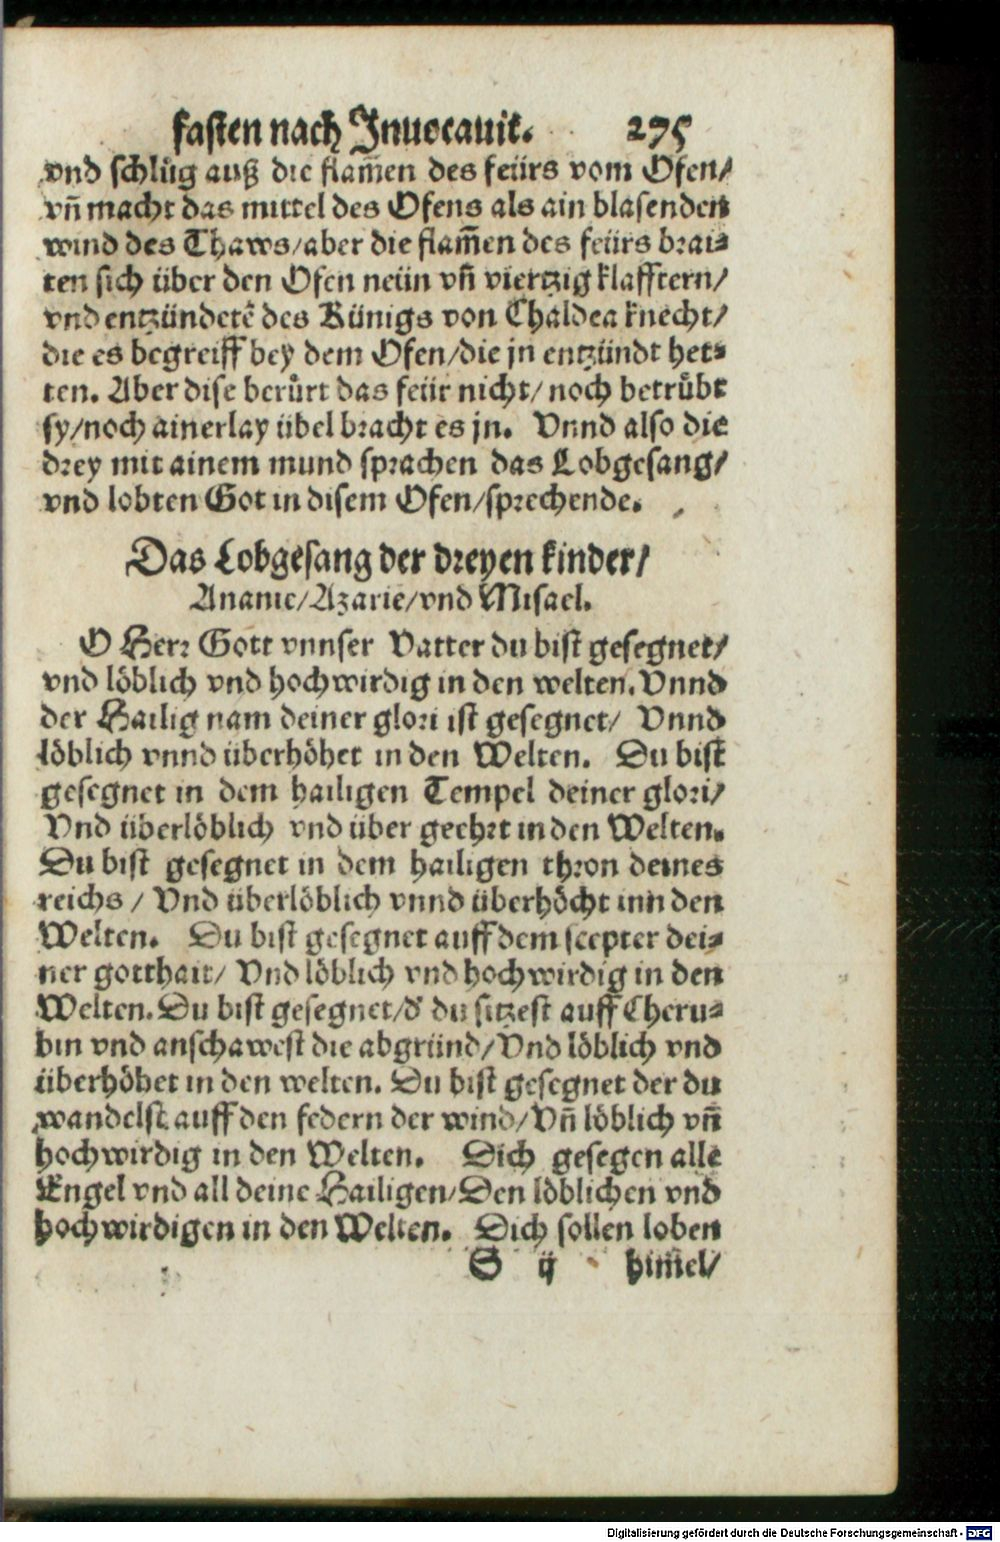 fasten nach Inuocauit. 275
vnd schlůg auß die flam̃en des feürs vom Ofen/
vñ macht das mittel des Ofens als ain blasenden
wind des Thaws/aber die flam̃en des feürs brai⸗
ten sich über den Ofen neün vñ viertzig klafftern/
vnd entzündetẽ des Künigs von Chaldea knecht/
die es begreiff bey dem Ofen/die jn entzündt het⸗
ten. Aber dise berůrt das feür nicht/ noch betrůbt
sy/noch ainerlay übel bracht es jn. Vnnd also die
drey mit ainem mund sprachen das Lobgesang/
vnd lobten Got in disem Ofen/sprechende.
Das Lobgesang der dreyen kinder/
Ananie/Azarie/vnd Misael.
O Herr Gott vnnser Vatter du bist gesegnet/
vnd löblich vnd hochwirdig in den welten. Vnnd
der Hailig nam deiner glori ist gesegnet/ Vnnd
löblich vnnd überhöhet in den Welten. Du bist
gesegnet in dem hailigen Tempel deiner glori/
Vnd überlöblich vnd über geehrt in den Welten.
Du bist gesegnet in dem hailigen thron deines
reichs / Vnd überlöblich vnnd überhöcht inn den
Welten. Du bist gesegnet auff dem scepter dei⸗
ner gotthait/ Vnd löblich vnd hochwirdig in den
Welten. Du bist gesegnet/d' du sitzest auff Cheru⸗
bin vnd anschawest die abgründ/Vnd löblich vnd
überhöhet in den welten. Du bist gesegnet der du
wandelst auff den federn der wind/Vñ löblich vñ
hochwirdig in den Welten. Dich gesegen alle
Engel vnd all deine Hailigen/Den löblichen vnd
hochwirdigen in den Welten. Dich sollen loben
S ij him̃el/
Digitalisierung gefördert durch die Deutsche Forschungsgemeinschaft - DFG